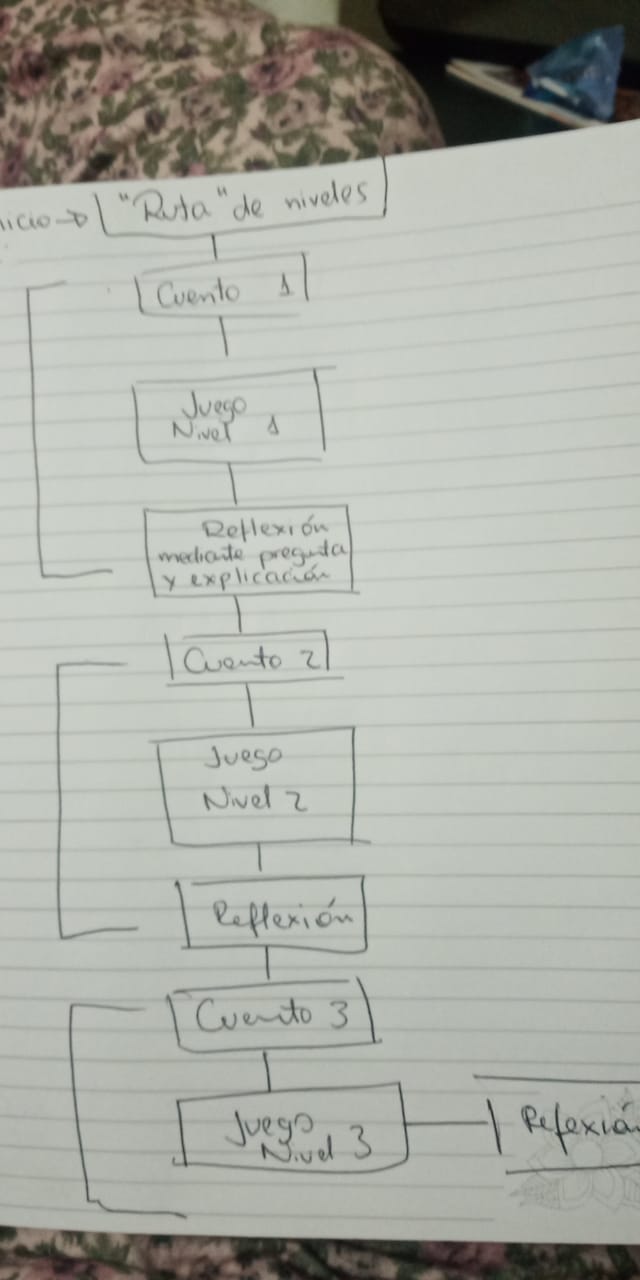 nicio → "Ruta" de niveles
Cuento 1
Juego
Nivel 1
Reflexión
mediante pregunta
y explicación
Cuento 2
Juego
Nivel 2
Reflexión
Cuento 3
Juego
Nivel 3
Refexión